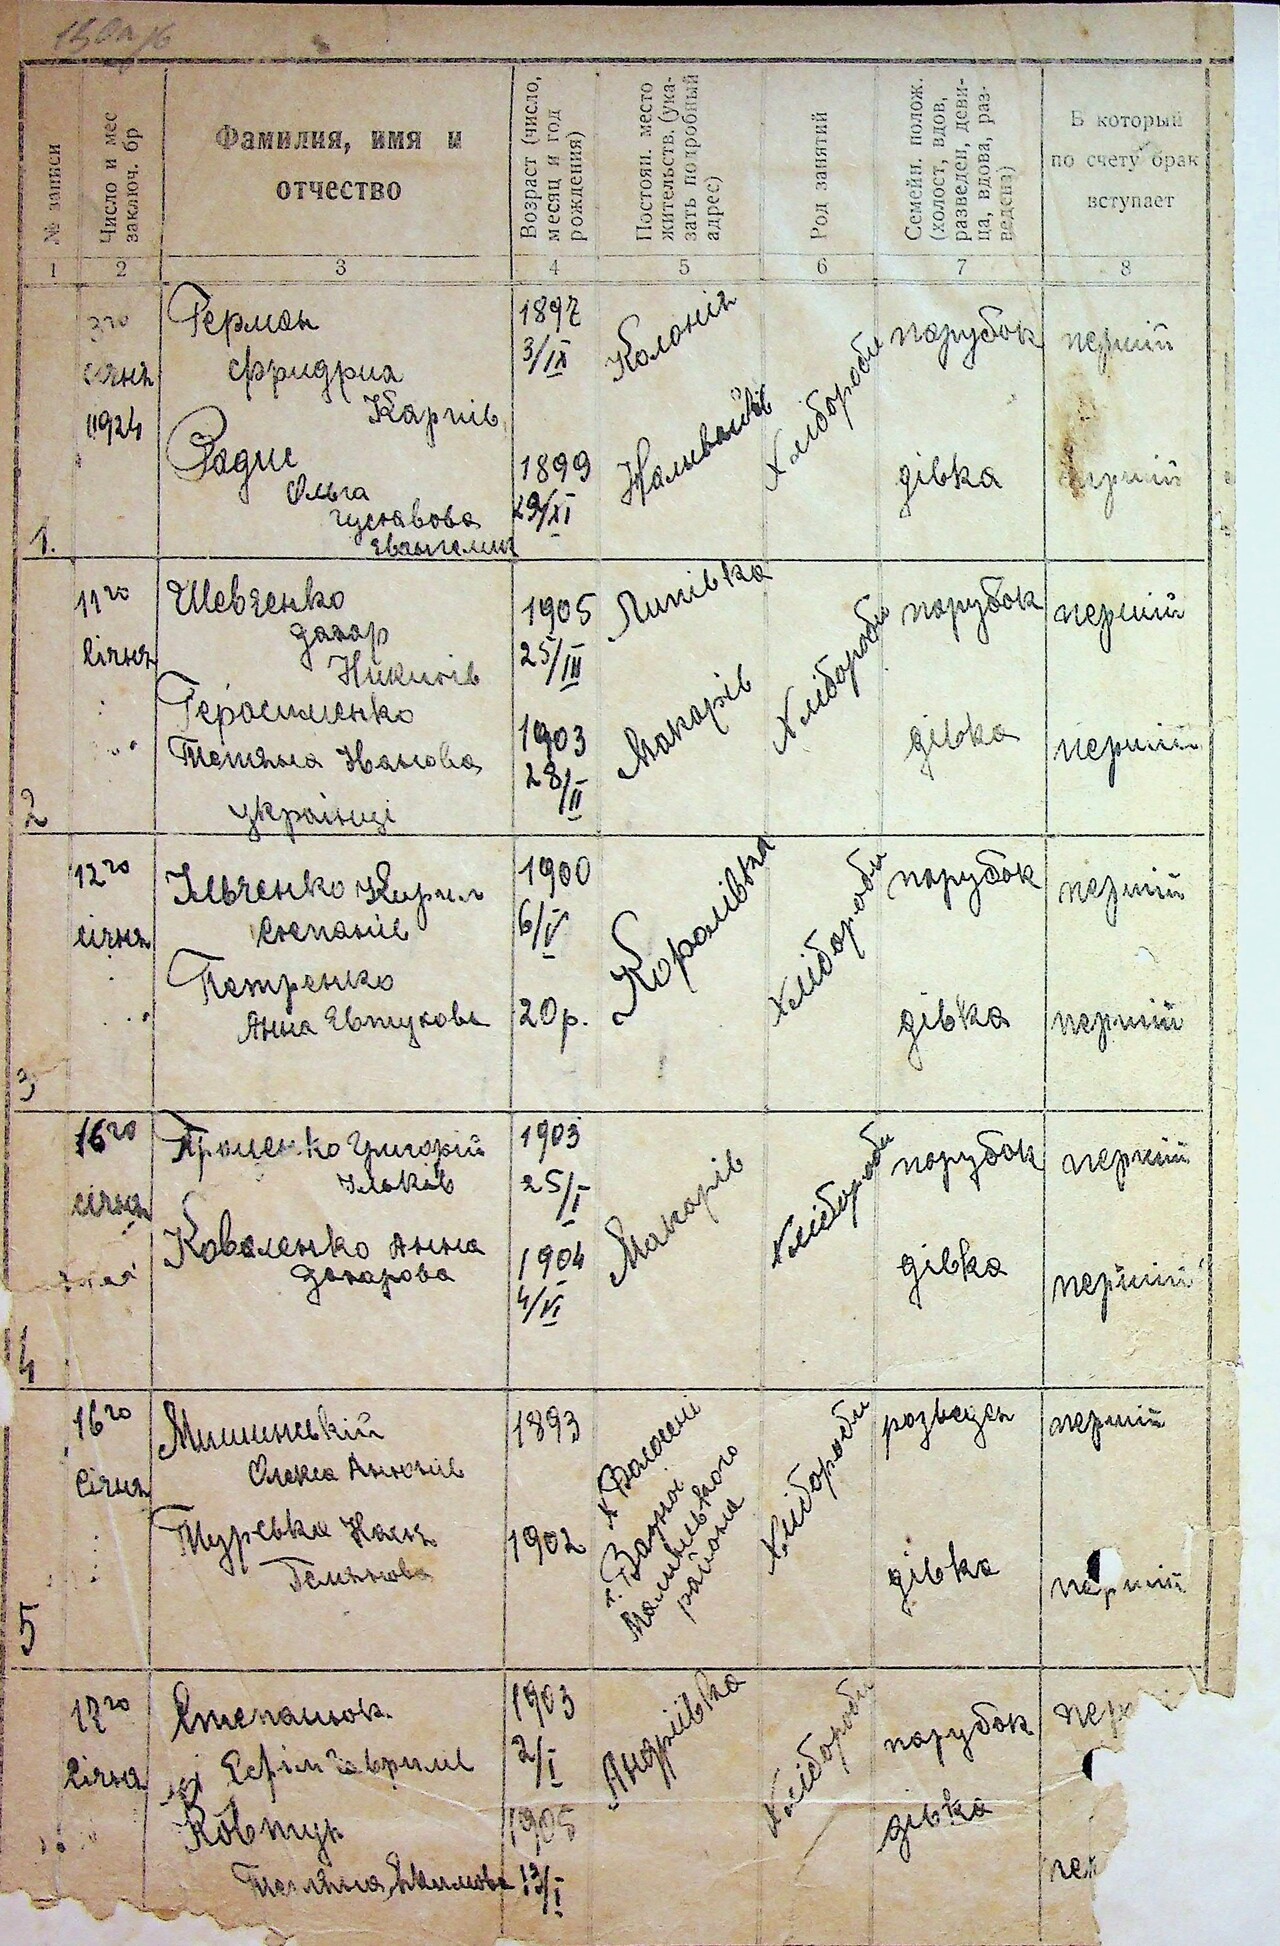 № записи
Число и мес
заключ. бр
Фамилия, имя и
отчество
Возраст (число,
месяц и год
рождения)
Постоян. место
жительств. (ука-
зать подробный
адрес)
Род занятий
Семейн. полож.
(холост, вдов,
разведен, деви-
ца, вдова, раз-
ведена)
В который
по счету брак
вступает
1 2 3 4 5 6 7 8
1.
3го
січня
1924
Герман
Фридрих
Карпів
Радис
Ольга
Густавова
1897
3/IX
1899
29/XI
Колонія
Хлібороби
парубок
дівка
перший
перший
2
11го
Січня
Шевченко
Захар
Никитів
Герасименко
Тетяна Іванова
українці
1905
25/III
1903
28/II
Липівка
Макарів
Хлібороби
парубок
дівка
перший
перший
3
12го
січня
Ільченко Кирил
Степанів
Петренко
Анна Євтухова
1900
6/V
20 р.
Королівка
Хлібороби
парубок
дівка
перший
перший
4
16го
січня
Григорій
Яковів
Коваленко Анна
Захарова
1903
25/I
1904
4/VI
Макарів
Хлібороби
парубок
дівка
перший
перший
5
16го
Січня
Олекса Антонів
1893
1902
района
Хлібороби
розведен
дівка
перший
перший
17го
Січня
Степанюк
Єфім Гаврилів
Ковтун
Тетяна Якимова
1903
2/I
1905
12/I
Андріївка
Хлібороби
парубок
дівка
пер
пер